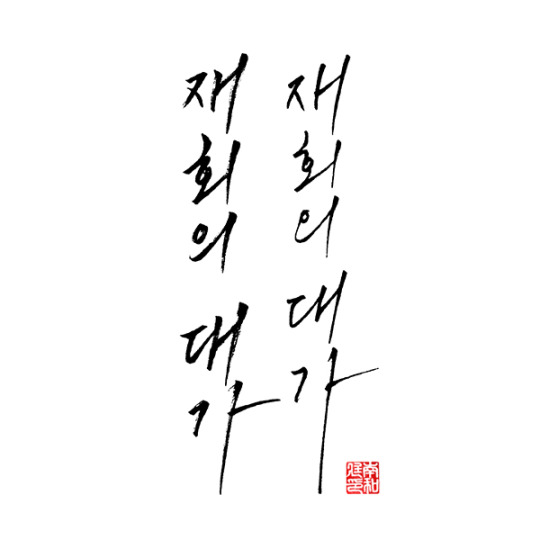 재회의 대가
재회의 대가